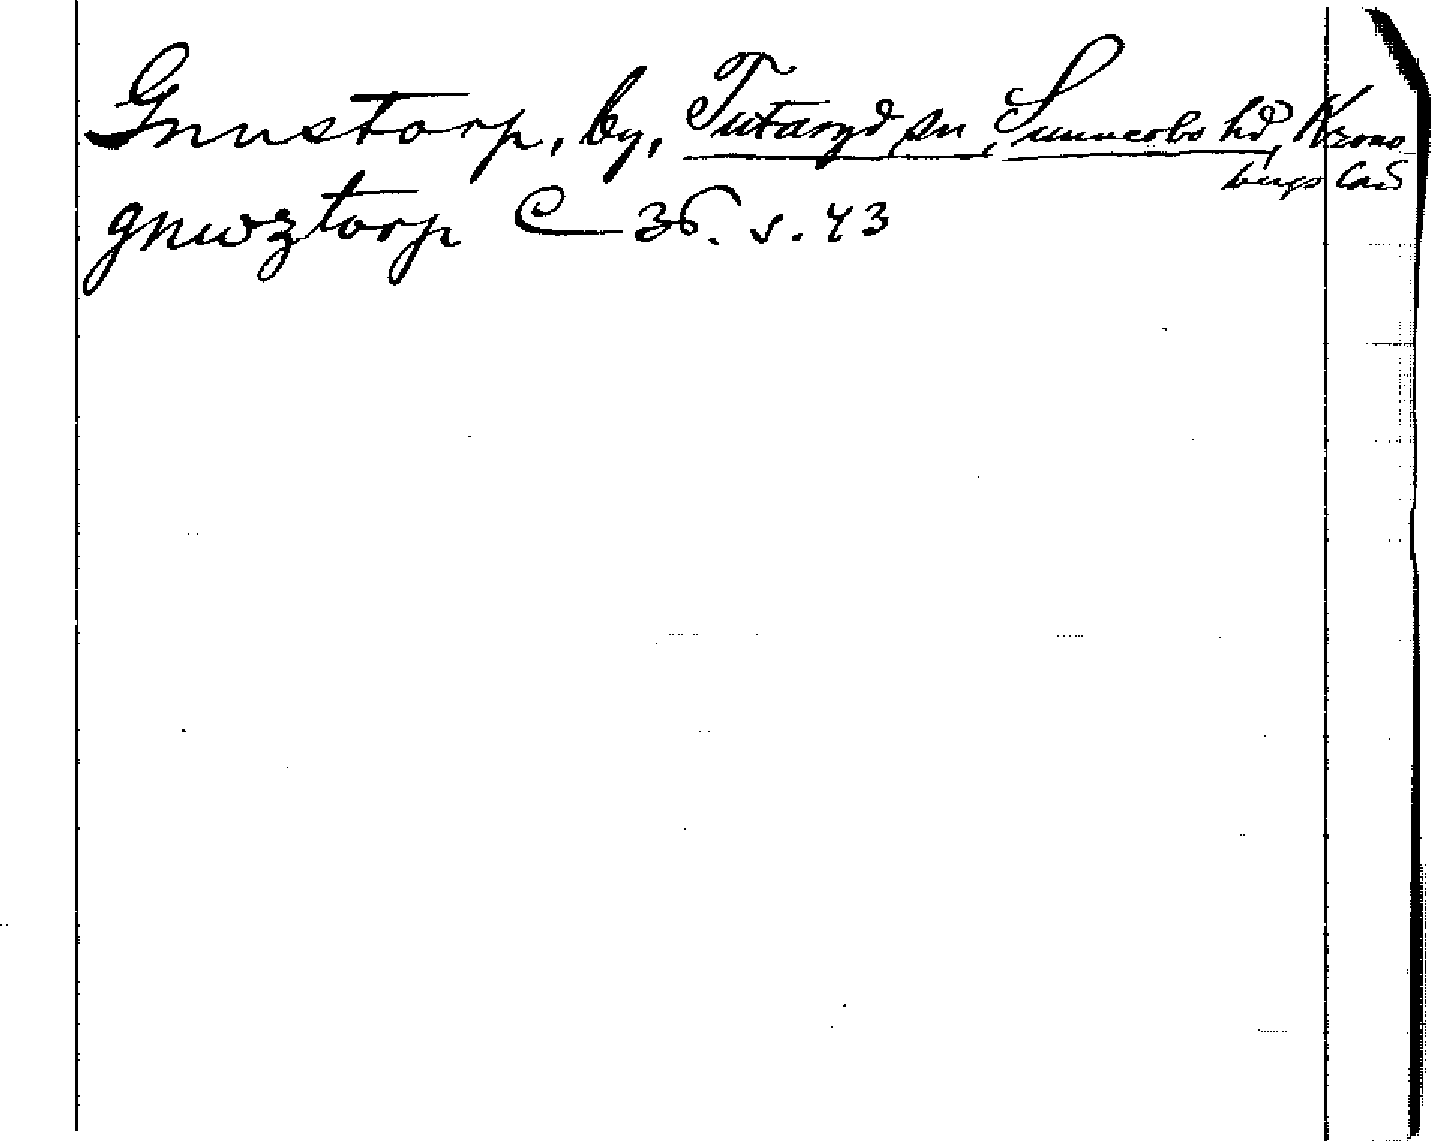 Gnustorp, by, Tutaryd sn, Sunnerbo hd, Krono
bergs län
gnwztorp C 36. s. 43